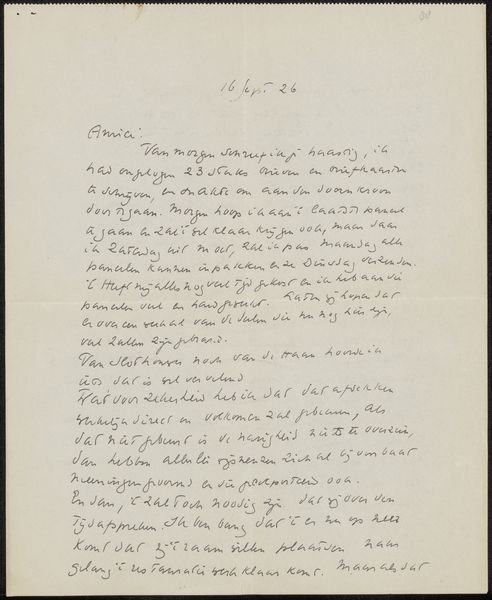 16 Sept 26
Amice.
Van morgen schreef ik je haastig, ik
had ongelogen 23 stuks brieven en briefkaarten
te schrijven, en snakte om aan den doornkroon
door te gaan. Morgen hoop ik aan 't laatste paneel
te gaan en zal 't wel klaar krijgen ook, maar daar
ik Zaterdag uit moet, zal ik pas Maandag alle
paneelen kunnen inpakken en ze Dinsdag verzenden.
't Heeft mij alles nog veel tijd gekost en ik heb aan die
paneelen veel en hard gewerkt. Laten wij hopen dat
er over een van de deelen die nu nog hier zijn,
zullen zijn
Van Slothouwer noch van de Haan hoorde ik
iets, dat is wel vervelend
Wat voor zekerheid heb ik dat dat afdekken
werkelijk direct en volkomen zal gebeuren, als
dat niet gebeurt is de narigheid niet te overzien,
dan hebben allerlei zich al bij voorbaat
meeningen gevormd en die ook.
En dan, 't zal toch noodig zijn dat wij over den
tijd afspreken. Ik ben bang dat 't er nu op neer
komt dat zij 't raam willen plaatsen naar
gelang 't restauratie werk klaar komt. Maar als dat